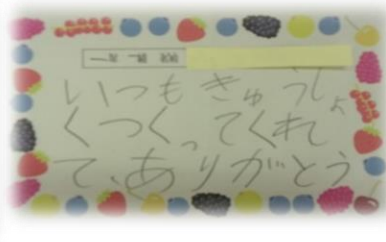 いつもきゅうしょ
くつくってくれ
て、ありがとう